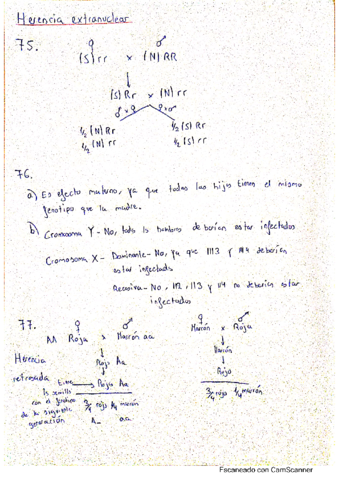 Herencia extranuclear
75.
♀ ♂
(S) rr x (N) RR
(S) Rr x (N) rr
♂ x ♀ ♀ x ♂
1/2 (N) Rr 1/2 (S) Rr
1/2 (N) rr 1/2 (S) rr
76.
a) Es efecto materno, ya que todos los hijos tienen el mismo
fenotipo que la madre.
b) Cromosoma Y - No, todos los hombres deberían estar infectados
Cromosoma X - Dominante - No, ya que III3 y III4 deberían
estar infectados
Recesiva - No, III2, III3 y III4 no deberían estar
infectados
77.
♀ ♂ ♀ ♂
AA Roja x Marrón aa Marrón x Roja
Rojo Aa Marrón
Herencia Rojo
retrasada Rojo Aa
3/4 rojo 1/4 marrón 3/4 rojo 1/4 marrón
de la siguiente
generación A_ aa
Escaneado con CamScanner